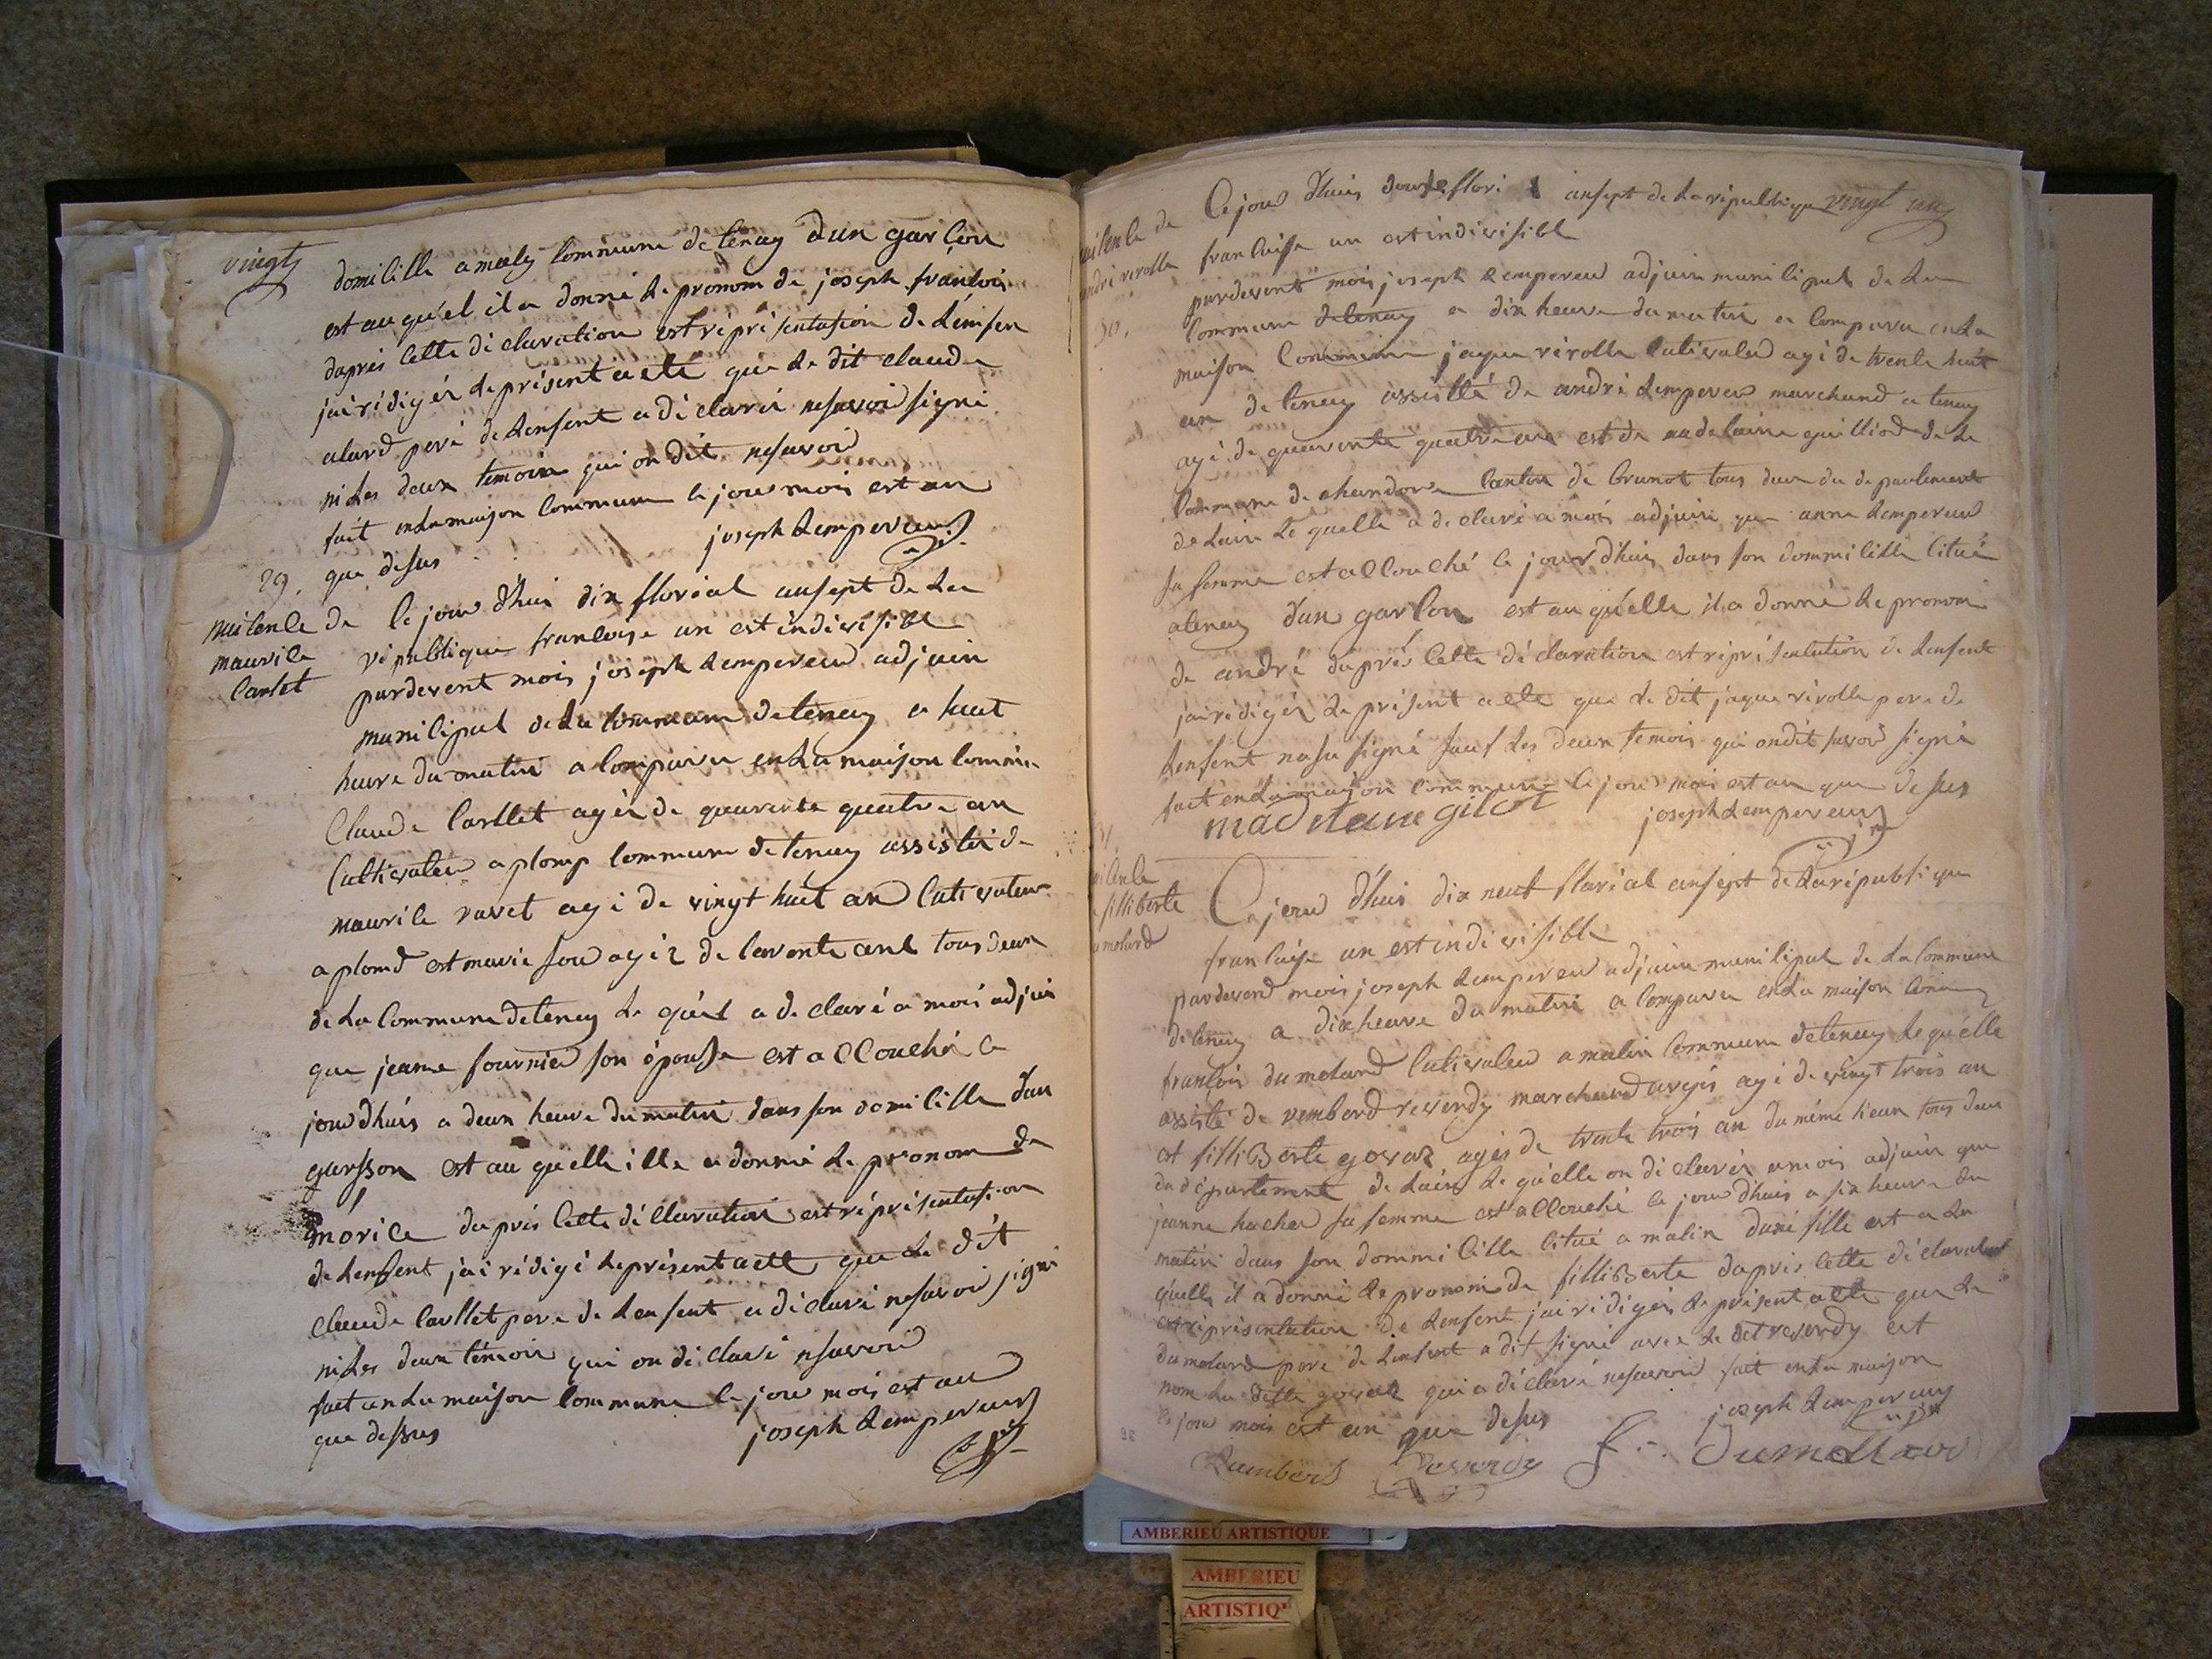 vingt
domicille a malix commune de tenay dun garçon
est au quel il a donné le pronom de joseph francois
dapres cette declaration est représentasion de lenfen
jai rédigér le présent acte que le dit claude
alard pere de lenfent a déclarér ne savoir signé
ni les deux temoin qui on dit ne savoir
fait en la maison commune le jour mois est an
que desus
joseph Lempereur
29.
naicence de
maurice
carlet
Ce jour d'hui dix floréal an sept de La
république francaise un est indivisible
pardevent mois joseph Lempereur adjoin
municipal de La commune de tenay a huit
heure du matin a comparu en La maison commune
Claude carllet agér de quarente quatre an
cultivateur a plomp commune de tenay assisté de
maurice ravet agé de vingt huit an cultivateur
a plomd est marie agér de tous deux
de La Commune de tenay Le quel a declaré a mois adjoin
que jeanne fournier son épousse est accouché ce
jourdhuis a deux heure du matin dans son domicille dun
garsson est au quelle ille a donné Le pronom de
morice daprés cette déclaration est réprésentasion
de Lenfent jai rédigé le présent acte que Le dit
claude carllet pere de Lenfent a déclaré ne savoir signé
ni Les deux témoin qui on déclaré ne savoir
fait en La maison commune le jour mois est an
que dessus
joseph Lempereur
naicence de
andré virolle
30.
Ce jour d'huis douse flori l an sept de La république
vingt un
francaisse un est indivisible
pardevent mois joseph Lempereur adjoin municipal de La
commune de tenay a dix heure du matin a comparu en La
maison commune jaque virolle cultivateur agé de trente huit
an de tenay assisté de andré Lempereur marchand a tenay
agé de quarente quatre ans est de madelaine guilliod de La
commune de chandore canton de brenot tous deux du departement
de Lain Le quelle a declaré a mois adjoin que anne Lempereur
sa femme est accouché ce jour d'huis dans son dommicille citué
a tenay d'un garcon est au quelle il a donné Le pronom
de andré daprés cette déclaration est représentation de Lenfent
jai redigér Le présent acte que Le dit jaque virolle pere de
Lenfent na su signé sauf Les deux temois qui on dit savoir signé
fait en La maison commune le jour mois est an que desus
madelaine gilot
joseph Lempereur
filliberte
dumolard
Ce jour d'hui dix neuf floréal an sept de La république
francaise un est indivisible
pardevend mois joseph Lempereur adjoin municipal de La commune
de tenay a dix heure du matin a comparu en La maison commune
francois dumolard cultivateur a malix commune de tenay Le quelle
assisté de rembert reverdy marchand argis agé de vingt trois an
et filliberte agés de trente trois an du même lieux tous deux
du département de Lain Le quelle on déclarér a mois adjoin que
jeanne sa femme est accouché ce jour d'huis a six heure du
matin dans son dommicille citué a malix dune fille est a La
quelle il a donné Le pronom de filliberte dapris cette déclaration
est reprisentation de Lenfent jai rédigér Le présent acte que Le
dumolard pere de Lenfent a dit signé avec Le dit reverdy est
non La ditte qui a déclaré ne savoir fait en La maison
le jour mois est an que desus
joseph Lempereur
Rambert Reverdy
f. Dumollard
AMBERIEU ARTISTIQUE
AMBERIEU
ARTISTIQ